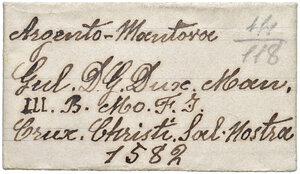 Argento-Mantova
44
118
Gul. D. G. Dux. Man.
III. B. Mo. F. I
Crux. Christi. Sal. Nostra
1582